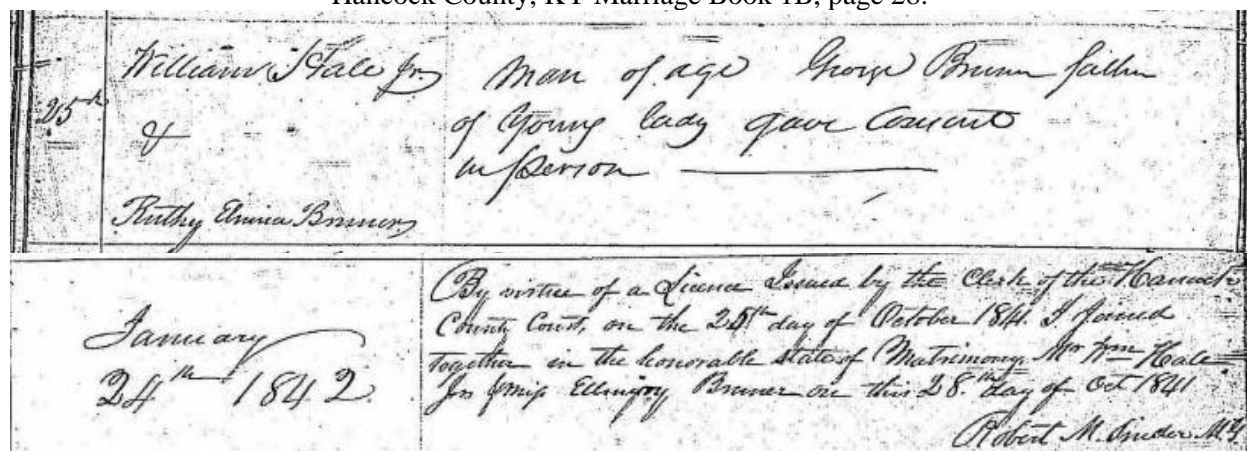 Hancock County, KY Marriage Book 1B, page 28.
William Hale Jr
25th
&
Ruthy Bruner
Man of age George Bruner father
of young lady gave consent
in person
January
24th 1842.
By virtue of a Licence Issued by the Clerk of the Hancock
County Court, on the 25th day of October 1841. I Joined
together in the honorable state of Matrimony Mr Wm Hale
Jr & Miss Bruner on this 28th day of Oct 1841
Robert M.